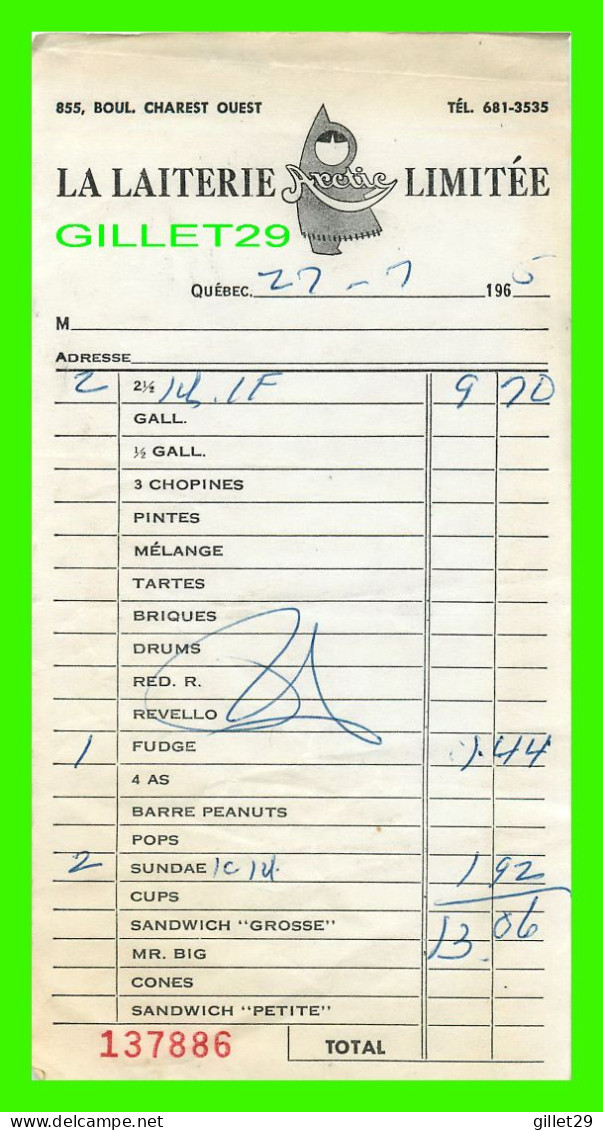 855, BOUL. CHAREST OUEST TÉL. 681-3535
LA LAITERIE Arctic LIMITÉE
GILLET29
QUÉBEC. 27 - 7 196
M
ADRESSE
2 2½ 9 70
GALL.
½ GALL.
3 CHOPINES
PINTES
MÉLANGE
TARTES
BRIQUES
DRUMS
RED. R.
REVELLO
1 FUDGE 1.44
4 AS
BARRE PEANUTS
POPS
2 SUNDAE 1 92
CUPS
SANDWICH "GROSSE" 13.06
MR. BIG
CONES
SANDWICH "PETITE"
137886 TOTAL
delcampe.net gillet29